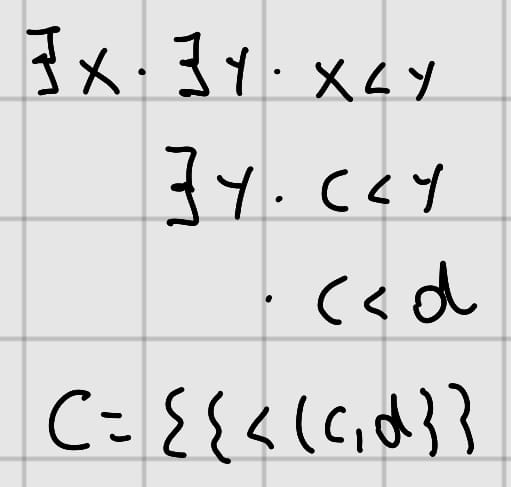 ∃x · ∃y · x<y
∃y · c<y
· c<d
C={{<(c,d}}